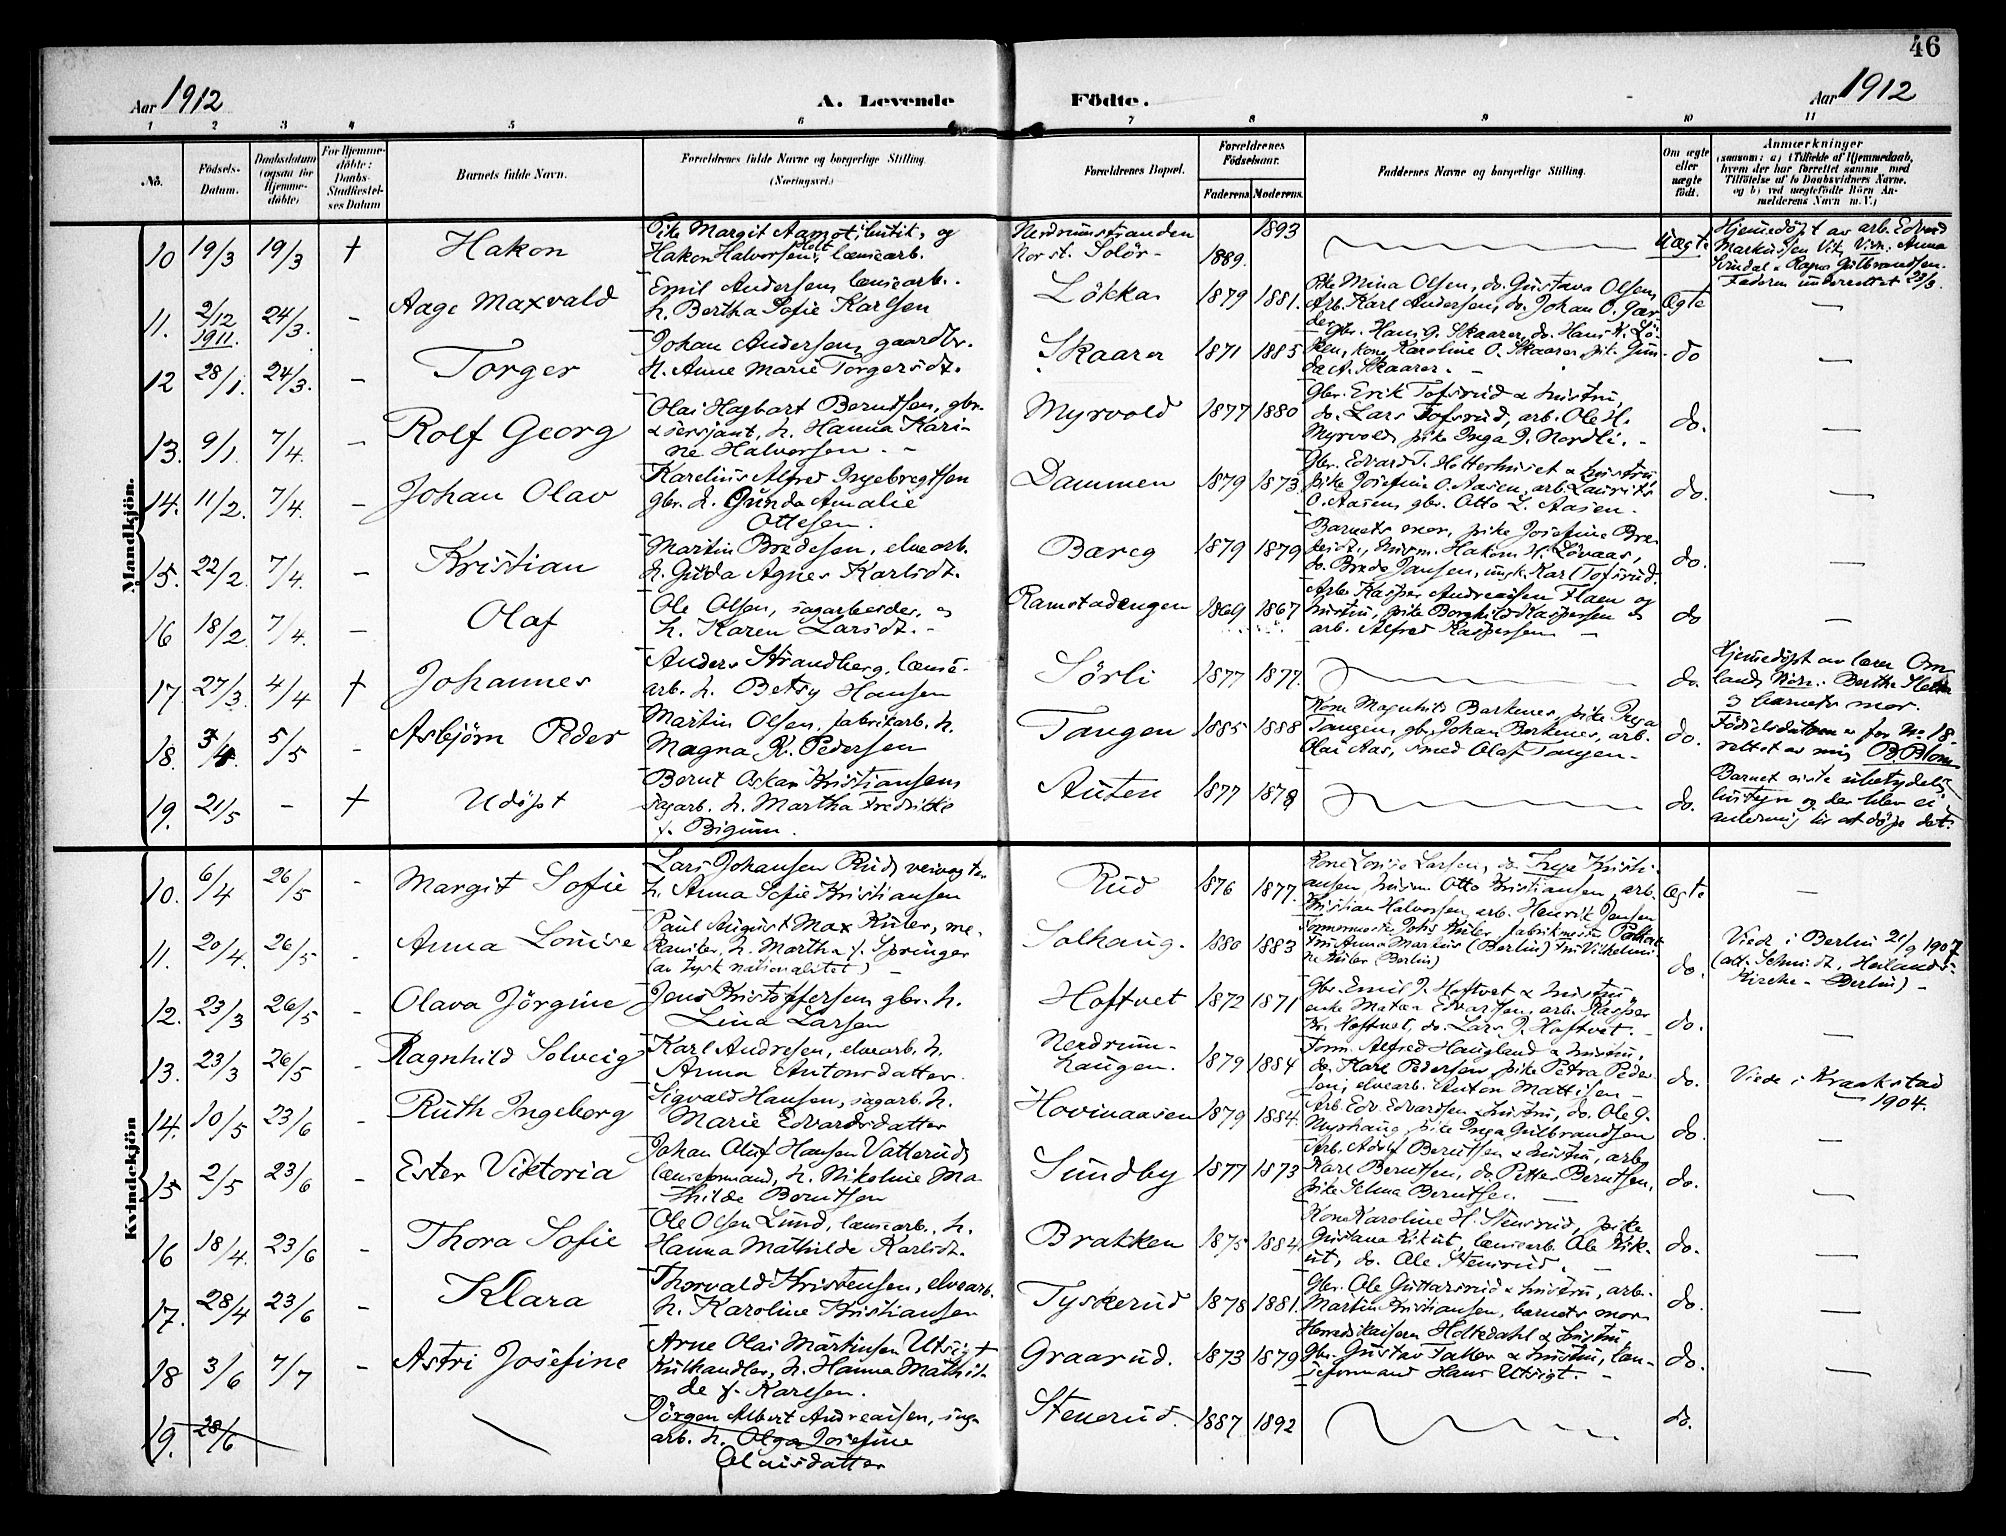 46
Aar 1912
A. Levende
Födte.
Aar 1912
1 2 3 4 5 6 7 8 9 10 11
No.
Födsels-
Datum.
Daabsdatum
(ogsaa for
Hjemme-
døbte)
For Hjemme-
döbte:
Daabs-
Stadfæstel-
ses Datum
Barnets fulde Navn.
Forældrenes fulde Navne og borgerlige Stilling.
(Næringsvei.)
Forældrenes Bopæl.
Forældrenes
Födselsaar.
Faderens. Moderens.
Faddernes Navne og borgerlige Stilling.
Om ægte
eller
uægte
födt.
Anmærkninger
(saasom: a) i Tilfælde af Hjemmedaab,
hvem der har forrettet samme med
Tilföielse af to Daabsvidners Navne,
og b) ved uægtefödte Börn An-
melderens Navn m. V.)
Mandkjön.
10 19/3 19/3 † Hakon
Pike Margit Aamot, butik, og
Hakon Halvorsen, lænsearb.
Nerdrumstranden
1889. 1893
Uægte
Hjemedøpt av arb. Edvard
Markussen
Faderen underrettet
11. 2/12 1911. 24/3. - Aage Maxvald
Emil Andersen, lænsearb.
h. Bertha Sofie Karlsen
Løkka 1879 1881.
Pike Mina Olsen, do. Gustava Olsen,
Arb. Karl Andersen, do. Johan O. Gar-
der
Ægte —
12 28/1. 24/3. - Torger
Johan Andersen, gaardbr.
h. Anne Marie Torgersdt.
Skaarer 1871 1885
Gbr. Hans G. Skaarer, do. Hans K. Lö-
ken, kone Karoline O. Skaarer, pik. Gun-
da A. Skaarer. -
do —
13. 9/1. 7/4. - Rolf Georg
Olai Hagbart Berntsen, gbr.
& sersjant, h. Hanna Kari-
ne Halvorsen. -
Myrvold 1877 1880
Gbr. Erik Tofsrud & hustru,
do. Lars Tofsrud, arb. Ole H.
Myrvold, pike Inga J. Nordli. -
do. —
14. 11/2. 7/4. - Johan Olav
Karelius Alfred Ingebregtsen
gbr. h. Gunda Amalie
Ottesen.
Dammen 1879 1873.
Gbr. Edvard T. Hotterhuset & hustru,
pike Josefine O. Aasen, arb. Laurits
O. Aasen, gbr. Otto L. Aasen.
do. —
15. 22/2. 7/4. - Kristian
Martin Bredesen, elvearb.
h. Gusta Agnes Karlsdt.
Bareg 1879 1879
Barnets mor, pike Josefine Bre-
desdt., husm. Hakon H. Lövaas,
do. Brede Jansen, ungk. Karl Tofsrud.
do. —
16 18/2. 7/4. - Olaf
Ole Olsen, sagarbeider, og
h. Karen Larsdt. -
Ramstadengen 1869 1867
Arb. Kasper Andreassen Flaen og
hustru, pike Borghild Kaspersen og
arb. Alfred Kaspersen -
do —
17. 27/3. 4/4 † Johannes
Anders Strandberg, lænse-
arb. h. Betsy Hansen
Sörli 1877 1877.
do.
Hjemedøpt av lærer Om-
land, Vidn. Berthe
og barnets mor.
18. 3/4. 5/5 - Asbjørn Peder
Martin Olsen, fabrikarb. h.
Magna K. Pedersen
Tangen 1885 1888
Kone Magnhild Barkenes, pike Inga
Tangen, gbr. Johan Barkenes, arb.
Olai Aas, smed Olaf Tangen.
do.
Födselsdatoen for No. 18
rettet av mig B. Blom
19. 21/5 - † Udøpt
Bernt Oskar Kristiansen
sagarb. h. Martha Fredrikke
f. Bigum.
Auten 1877 1878
do.
Barnet viste ubetydelig
livstegn og der blev ei
anledning til at døpe det.
Kvindekjön
10. 6/4 26/5 - Margit Sofie
Lars Johansen Rud, veivogter
h. Anna Sofie Kristiansen
Rud 1876 1877.
Kone Lovise Larsen, do. Inga Kristi-
ansen, husm. Otto Kristiansen, arb.
Kristian Halvorsen, arb. Henrik Jensen
Ægte —
11. 20/4. 26/5 - Anna Louise
Paul August Max Küler, me-
kaniker, h. Martha f. Springer
(av tysk nationalitet) -
Solhaug. 1880 1883
Fru Anna Markus (Berlin) Fru Vilhelmi-
ne Küler (Berlin)
do.
Viede i Berlin 21/9 1907
(att. Schmidt, Heilands-
Kirche - Berlin) -
12. 23/3 26/5 - Olava Jørgine
Jens Kristoffersen, gbr. h.
Lina Larsen
Hoftvet 1872 1871
Gbr. Emil J. Hoftvet & hustru
enke Matea Edvardsen, arb. Kasper
Kr. Hoftvet, do. Lars J. Hoftvet. -
do. —
13. 23/3 26/5 - Ragnhild Solveig
Karl Andresen, elvearb. h.
Anna Antonsdatter.
Nerdrum-
haugen. 1879 1884
Form. Alfred Haugland & hustru,
do. Karl Pedersen, pike Petra Peder-
sen, elvearb. Anton Mattisen -
do.
Viede i Kraakstad
1904.
14. 10/5 23/6 - Ruth Ingeborg
Sigvald Hansen, sagarb. h.
Marie Edvardsdatter
Hovinaasen 1879 1884.
Arb. Edv. Edvardsen & hustru, do. Ole G.
Myrhaug, pike Inga Gulbrandsen
do. —
15 2/5 23/6 - Ester Viktoria
Johan Oluf Hansen Vatterud,
lænseformand, h. Nikoline Ma-
thilde Berntsen
Sundby 1877 1873
Arb. Adolf Berntsen & hustru, arb.
Karl Berntsen, do. Petter Berntsen,
pike Selma Berntsen. —
do. —
16 18/4. 23/6 - Thora Sofie
Ole Olsen Lund, lænsearb. h.
Hanna Mathilde Karlsdt.
Brakken 1875 1884
Kone Karoline H. Stensrud, pike
Gustava Kikut, lænsearb. Ole Kik-
ut, do. Ole Stensrud. -
do. —
17. 28/4 23/6 - Klara
Thorvald Kristensen, elvearb.
h. Karoline Kristiansen
Tyskerud 1878 1881.
Gbr. Ole Guttarsrud & hustru, arb.
Martin Kristiansen, barnets mor
do. —
18 3/6 7/7 - Astri Josefine
Arne Olai Martinsen Utsigt
kulhandler, h. Hanna Mathil-
de f. Karlsen.
Graarud. 1873 1879
Herredskasserer Holtedahl & hustru,
gbr. Gustav Faller & hustru, læn-
seformand Hans Utsigt. -
do. —
19. 28/6
Jörgen Albert Andreassen, sag-
arb. h. Olga Josefine
Olausdatter
Stenerud. 1887 1892
do.